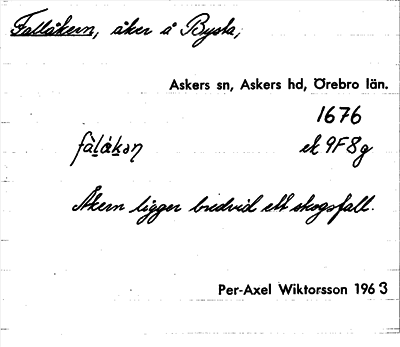 Fallåkern, åker å Bysta,
Askers sn, Askers hd, Örebro län.
1676
fàlåkən ek 9F8g
Åkern ligger bredvid ett skogsfall.
Per-Axel Wiktorsson 1963